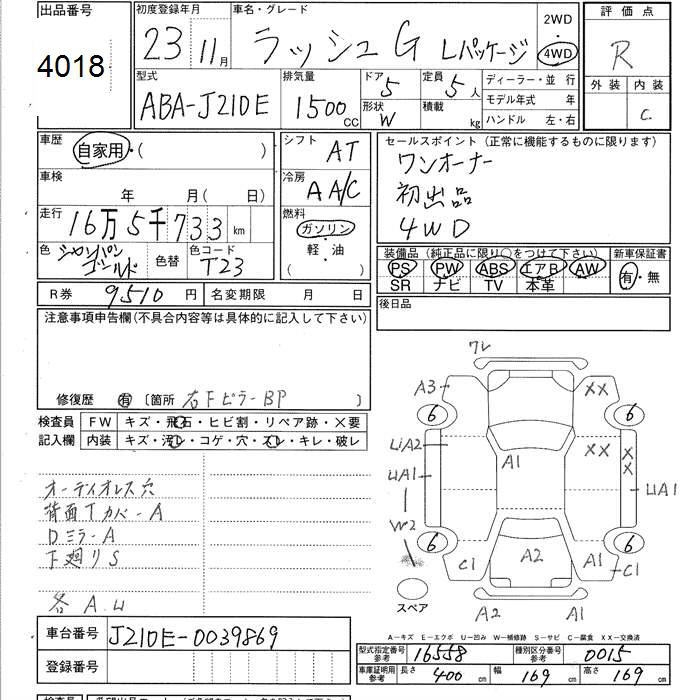 出品番号 4018
初度登録年月 23 11月
車名・グレード ラッシュG Lパッケージ
2WD ・ 4WD
評価点 R
外装 内装 C
型式 ABA-J210E
排気量 1500 CC
ドア 5
形状 W
定員 5人
積載 kg
ディーラー・並行
モデル年式 年
ハンドル 左・右
車歴 自家用・( )
車検 年 月( 日)
走行 16万5千733 km
色 シャンパンゴールド 色替 色コード T23
シフト AT
冷房 AA/C
燃料 ガソリン・軽・油 ( )
セールスポイント(正常に機能するものに限ります)
ワンオーナー
初出品
4WD
装備品(純正品に限り○をつけて下さい) 新車保証書
PS PW ABS エアB AW 有・無
SR ナビ TV 本革
後日品
R券 9510 円 名変期限 月 日
注意事項申告欄(不具合内容等は具体的に記入して下さい)
修復歴 有 〔箇所 右Fピラー BP 〕
検査員記入欄
FW キズ・飛石・ヒビ割・リペア跡・×要
内装 キズ・汚レ・コゲ・穴・スレ・キレ・破レ
オーディオレス穴
背面Tカバー-A
Dミラ-A
下廻りS
各A.U
ワレ
A3 XX
6 6
LiA2 XX
A1 XX
UA1 UA1
W2
6 6
C1 A2 A1 C1
スペア
A2 A1
A-キズ E-エクボ U-凹み W-補修跡 S-サビ C-腐食 XX-交換済
車台番号 J210E-0039869
登録番号
型式指定番号参考 16558 種別区分番号参考 0015
車庫証明用参考 長さ 400 cm 幅 169 cm 高さ 169 cm